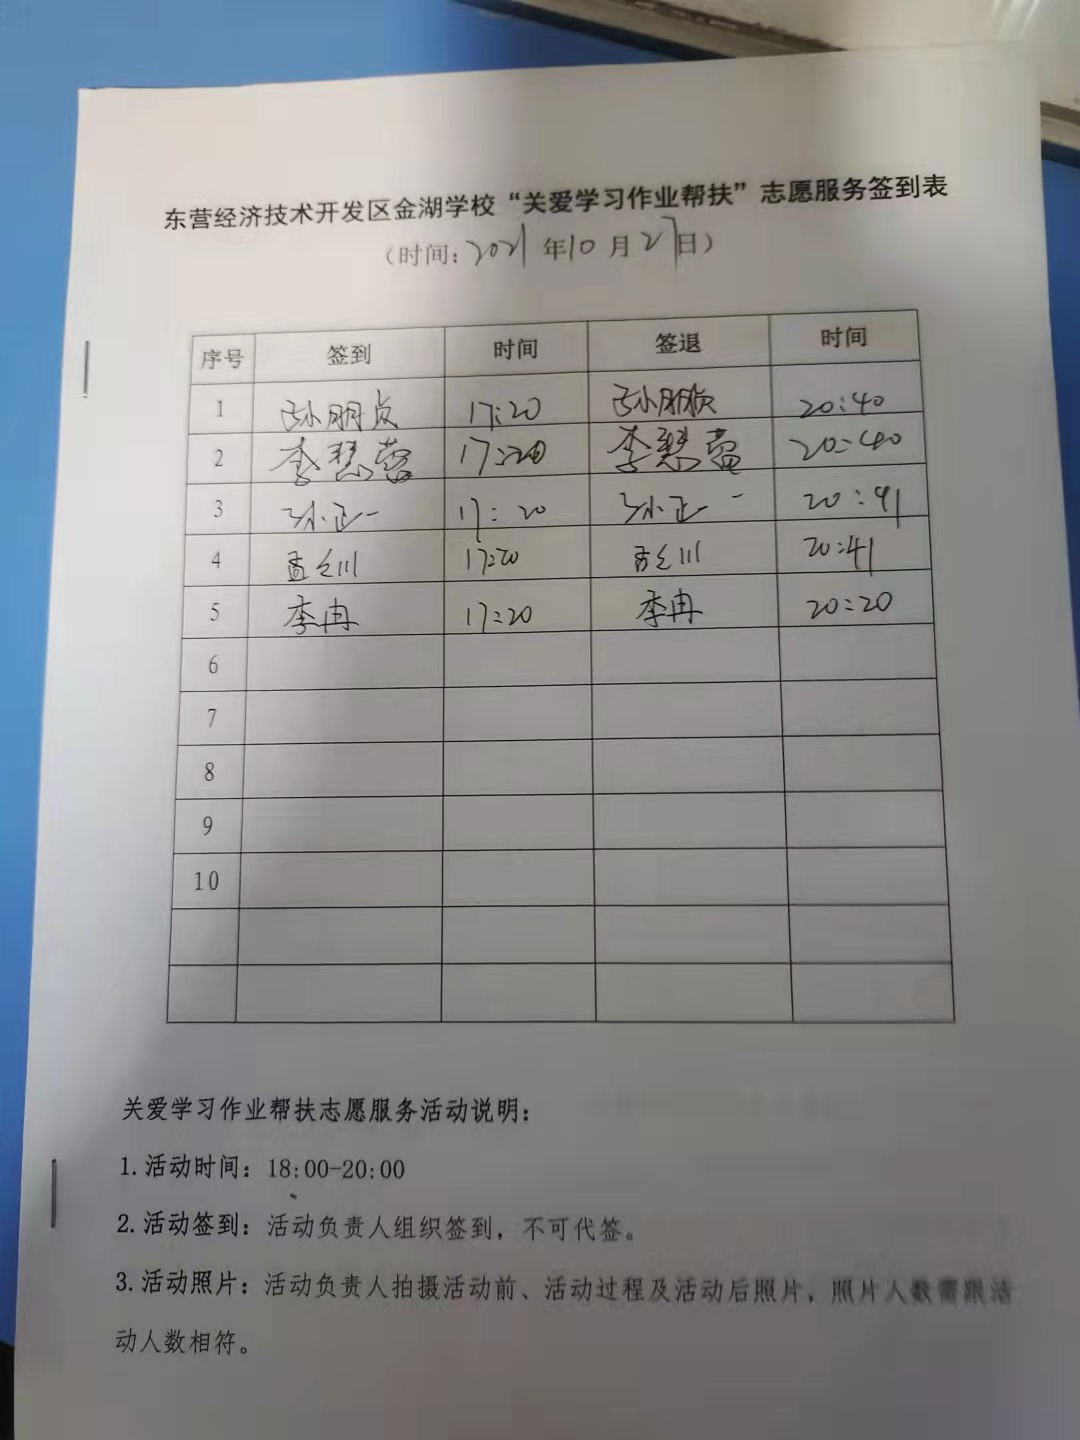 东营经济技术开发区金湖学校“关爱学习作业帮扶”志愿服务签到表
（时间：2021年10月27日）
序号 签到 时间 签退 时间
1 孙朋贞 17:20 孙朋贞 20:40
2 李慧蕾 17:20 李慧蕾 20:40
3 孙正一 17:20 孙正一 20:41
4 孟令川 17:20 孟令川 20:41
5 李冉 17:20 李冉 20:20
6
7
8
9
10
关爱学习作业帮扶志愿服务活动说明：
1.活动时间：18:00-20:00
2.活动签到：活动负责人组织签到，不可代签。
3.活动照片：活动负责人拍摄活动前、活动过程及活动后照片，照片人数需跟活
动人数相符。